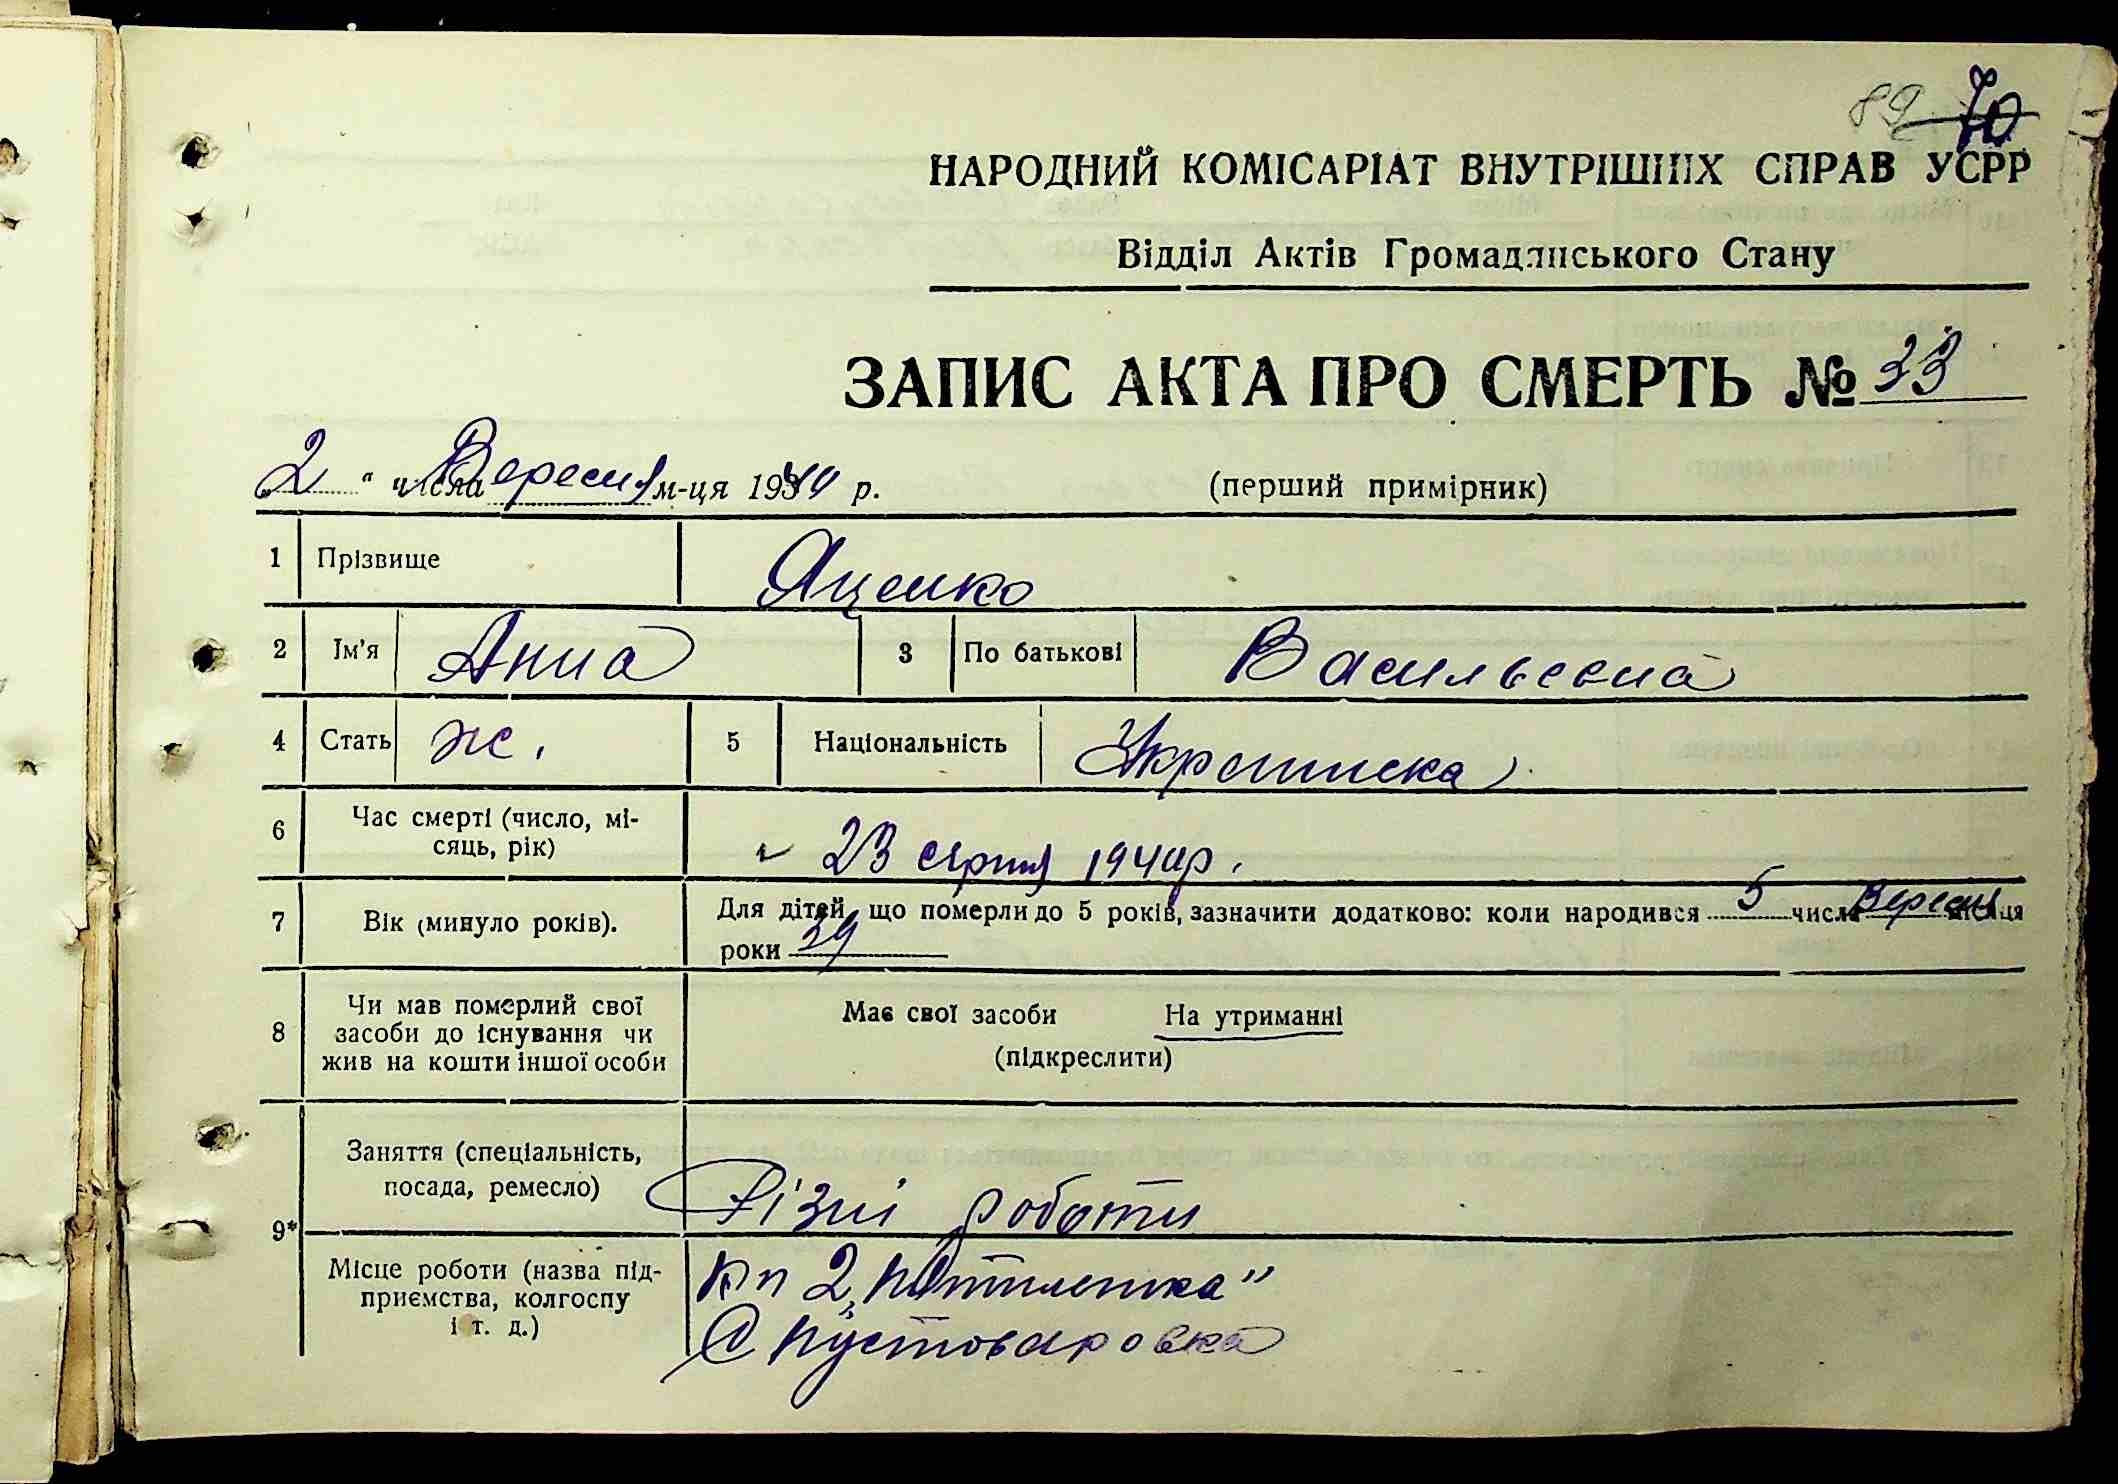 89 70
НАРОДНИЙ КОМІСАРІАТ ВНУТРІШНІХ СПРАВ УСРР
Відділ Актів Громадянського Стану
ЗАПИС АКТА ПРО СМЕРТЬ № 33
„2“ числа Вересня м-ця 1940 р. (перший примірник)
1 Прізвище Яценко
2 Ім'я Анна 3 По батькові Васильевна
4 Стать ж. 5 Національність Українка
6 Час смерті (число, мі-
сяць, рік) 23 серпня 1940р.
7 Вік (минуло років). Для дітей, що померли до 5 років, зазначити додатково: коли народився 5 числа Вересня місяця
роки 39
8 Чи мав померлий свої
засоби до існування чи
жив на кошти іншої особи
Має свої засоби На утриманні
(підкреслити)
9* Заняття (спеціальність,
посада, ремесло) Різні роботи
Місце роботи (назва під-
приємства, колгоспу
і т. д.)
Кп 2 „Пятилетка"
С Пустоваровка